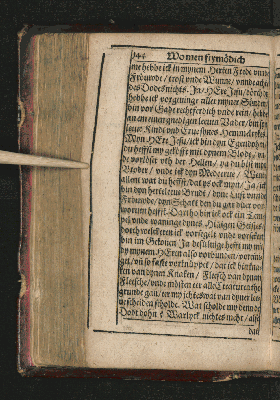 144 Wo men stymödich
me hebbe ick in mynem Herten Frede vnde
Fröuwde / trost vnde Wunne / vnde achte
des Dodes nichts. Ja / HEre Jesu / dörch dy
hebbe ick vorgeuinge aller myner Sünden
bin vor Gade rechtferdich vnde rein / hebbe
an em einen gnedigen leeuen Vader / bin syn
leeue Kindt vnd Erue synes Hemmelrykes.
Myn HEre Jesu / ick bin dyn Egendohm /
du heffst my gekofft mit dynem Blode / vn
de vorlöset vth der Hellen / ja du bist myn
Broder / vnde ick dyn Mede erue / Wenn
allent wat du heffst / dat ys ock myn / Ja / ick
bin dyn herteleeue Brudt / dyne Lust vnde
Fröuwde / dyn Schatt den du gar dür vor
woruen heffst. Dartho bin ick ock ein Tem
pel vnde waninge dynes Hilligen Geistes /
dorch welckeren ick vorsegelt vnde vorseckert
bin im Gelouen
my dynem HEren also vorbunden / vortru
wet / vn so faste vorknüppet / dat ick bin Kna
ken van dynen Knaken / Fleesch van dynem
Fleesche / vnde müsten eer alle Creaturen tho
grunde gan / eer my ichteswat van dyner leeue
scheiden scholde. Wat scholde my denn de
Dodt dohn? Warlyck nichtes mehr / alse
dat